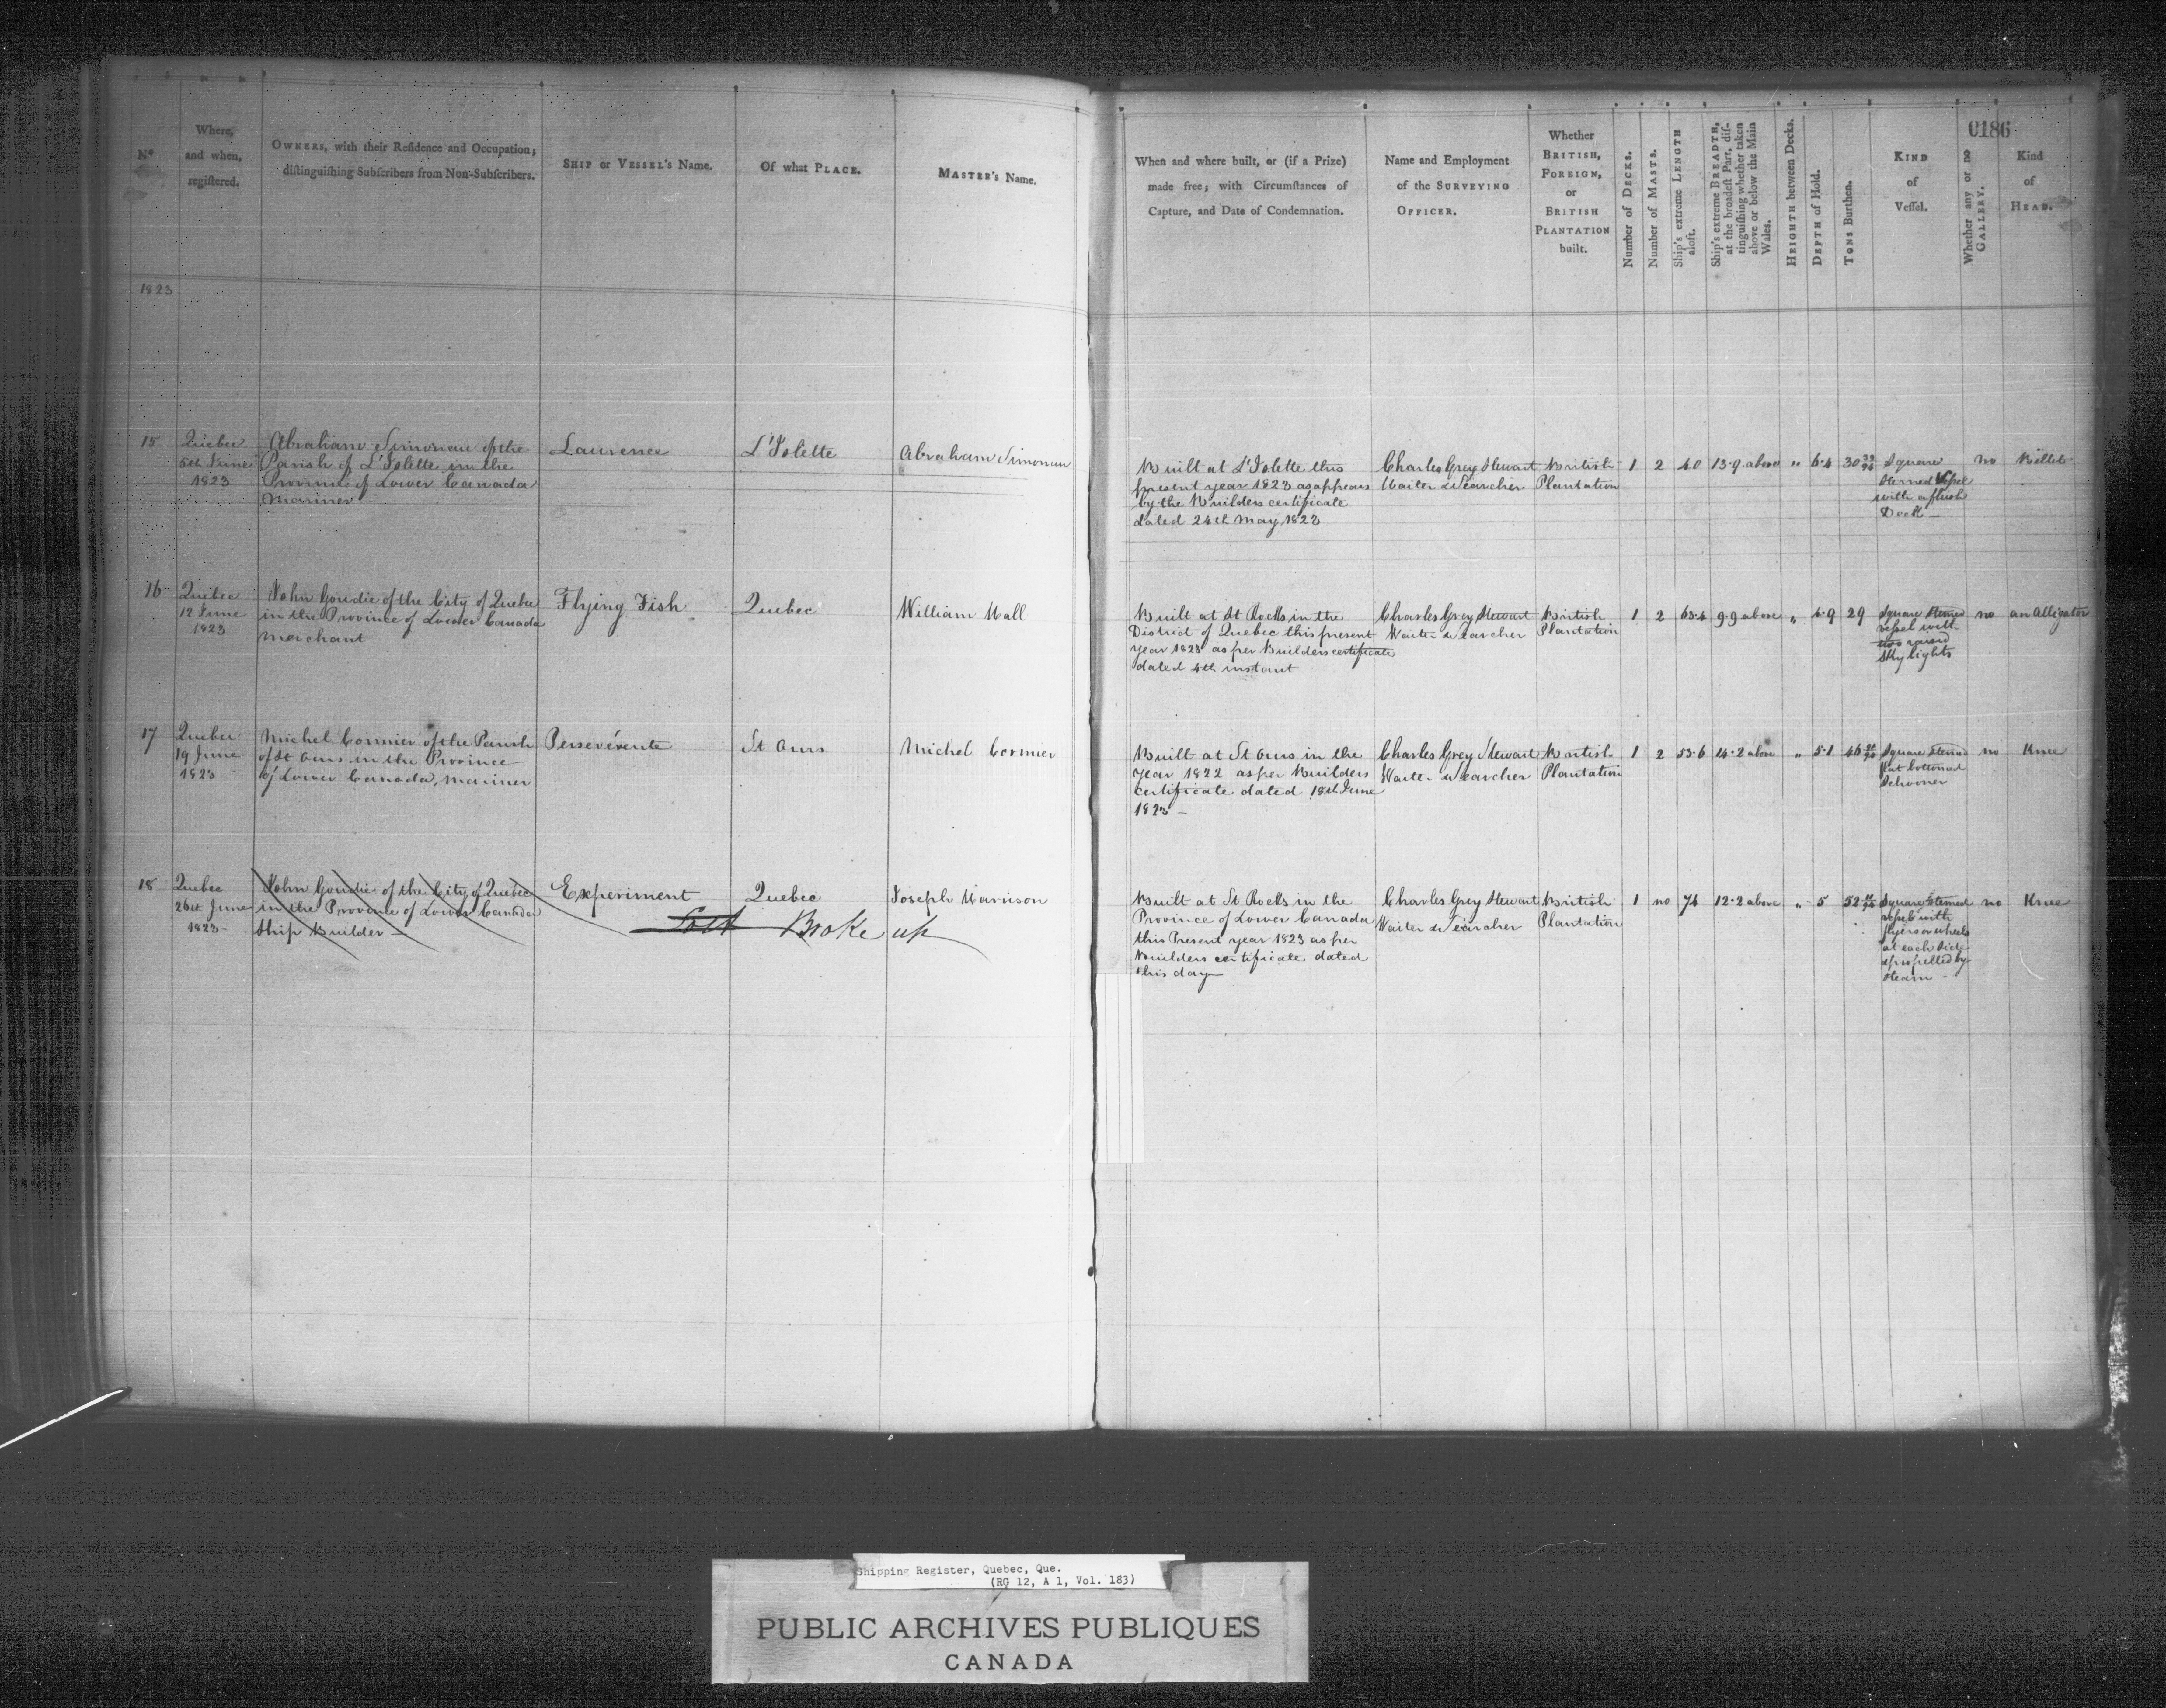 0186
No
Where,
and when,
registered.
OWNERS, with their Residence and Occupation;
distinguishing Subscribers from Non-Subscribers.
SHIP or VESSEL's Name.
Of what PLACE.
MASTER's Name.
When and where built, or (if a Prize)
made free; with Circumstances of
Capture, and Date of Condemnation.
Name and Employment
of the SURVEYING
OFFICER.
Whether
BRITISH,
FOREIGN,
or
BRITISH
PLANTATION
built.
Number of DECKS.
Number of MASTS.
Ship's extreme LENGTH
aloft.
Ship's extreme BREADTH,
at the broadest Part, dis-
tinguishing whether taken
above or below the Main
Wales.
HEIGHTH between Decks.
DEPTH of Hold.
TONS Burthen.
KIND
of
Vessel.
Whether any or no
GALLERY.
Kind
of
HEAD.
1823
15
Quebec
5th June
1823
Abraham Simoneau of the
Parish of L'Islette in the
Province of Lower Canada
Mariner
Laurence
L'Islette
Abraham Simoneau
Built at L'Islette this
present year 1823 as appears
by the Builders certificate
dated 24th May 1823
Charles Grey Stewart
Waiter & Searcher
British
Plantation
1
2
40
13.9 above
"
6.4
30
Square
Sterned Vessel
with a flush
Deck
no
Billet
16
Quebec
12 June
1823
John Goudie of the City of Quebec
in the Province of Lower Canada
Merchant
Flying Fish
Quebec
William Hall
Built at St Rocks in the
District of Quebec this present
year 1823 as per Builders certificate
dated 4th instant
Charles Grey Stewart
Waiter & Searcher
British
Plantation
1
2
63.4
9.9 above
"
4.9
29
Square Sterned
vessel with
two raised
Sky lights
no
an Alligator
17
Quebec
19 June
1823
Michel Cormier of the Parish
of St Ours in the Province
of Lower Canada, Mariner
Persevérente
St Ours
Michel Cormier
Built at St Ours in the
Year 1822 as per Builders
certificate dated 18th June
1823 –
Charles Grey Stewart
Waiter & Searcher
British
Plantation
1
2
53.6
14.2 above
"
5.1
46
Square Sterned
flat bottomed
Schooner
no
Knee
18
Quebec
26th June
1823 –
John Goudie of the City of Quebec
in the Province of Lower Canada
Ship Builder –
Experiment
Quebec
Joseph Harrison
Broke up
Built at St Rocks in the
Province of Lower Canada
this Present year 1823 as per
Builders certificate dated
this day
Charles Grey Stewart
Waiter & Searcher
British
Plantation
1
no
74
12.2 above
"
5
52
Square Sterned
vessel with
flyers or wheels
at each Side
& propelled by
Steam
no
Knee
Shipping Register, Quebec, Que.
(RG 12, A 1, Vol. 183)
PUBLIC ARCHIVES PUBLIQUES
CANADA